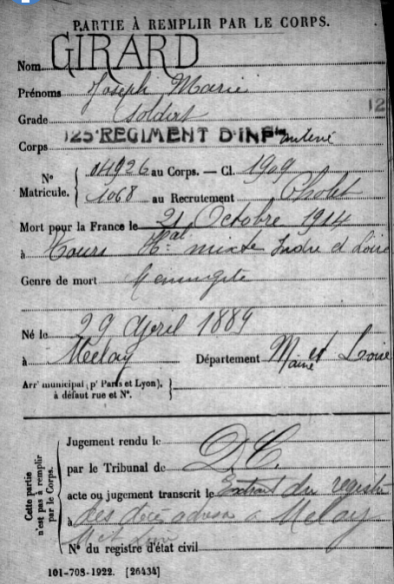 PARTIE À REMPLIR PAR LE CORPS.
Nom GIRARD
Prénoms Joseph Marie
Grade Soldat
12
Corps 125e REGIMENT D'INFie
N° Matricule. 04926 au Corps. — Cl. 1909
1068 au Recrutement Cholet
Mort pour la France le 21 Octobre 1914
à Tours Hal mixte Indre et Loire
Genre de mort Méningite
Né le 29 Avril 1889
à Melay Département Maine et Loire
Arrt municipal (pr Paris et Lyon),
à défaut rue et N°.
Cette partie n'est pas à remplir par le Corps.
Jugement rendu le
par le Tribunal de D.C.
acte ou jugement transcrit le Extrait du registre
à des décès adressé à Melay
Met Loire
N° du registre d'état civil
101-708-1922. [26434]